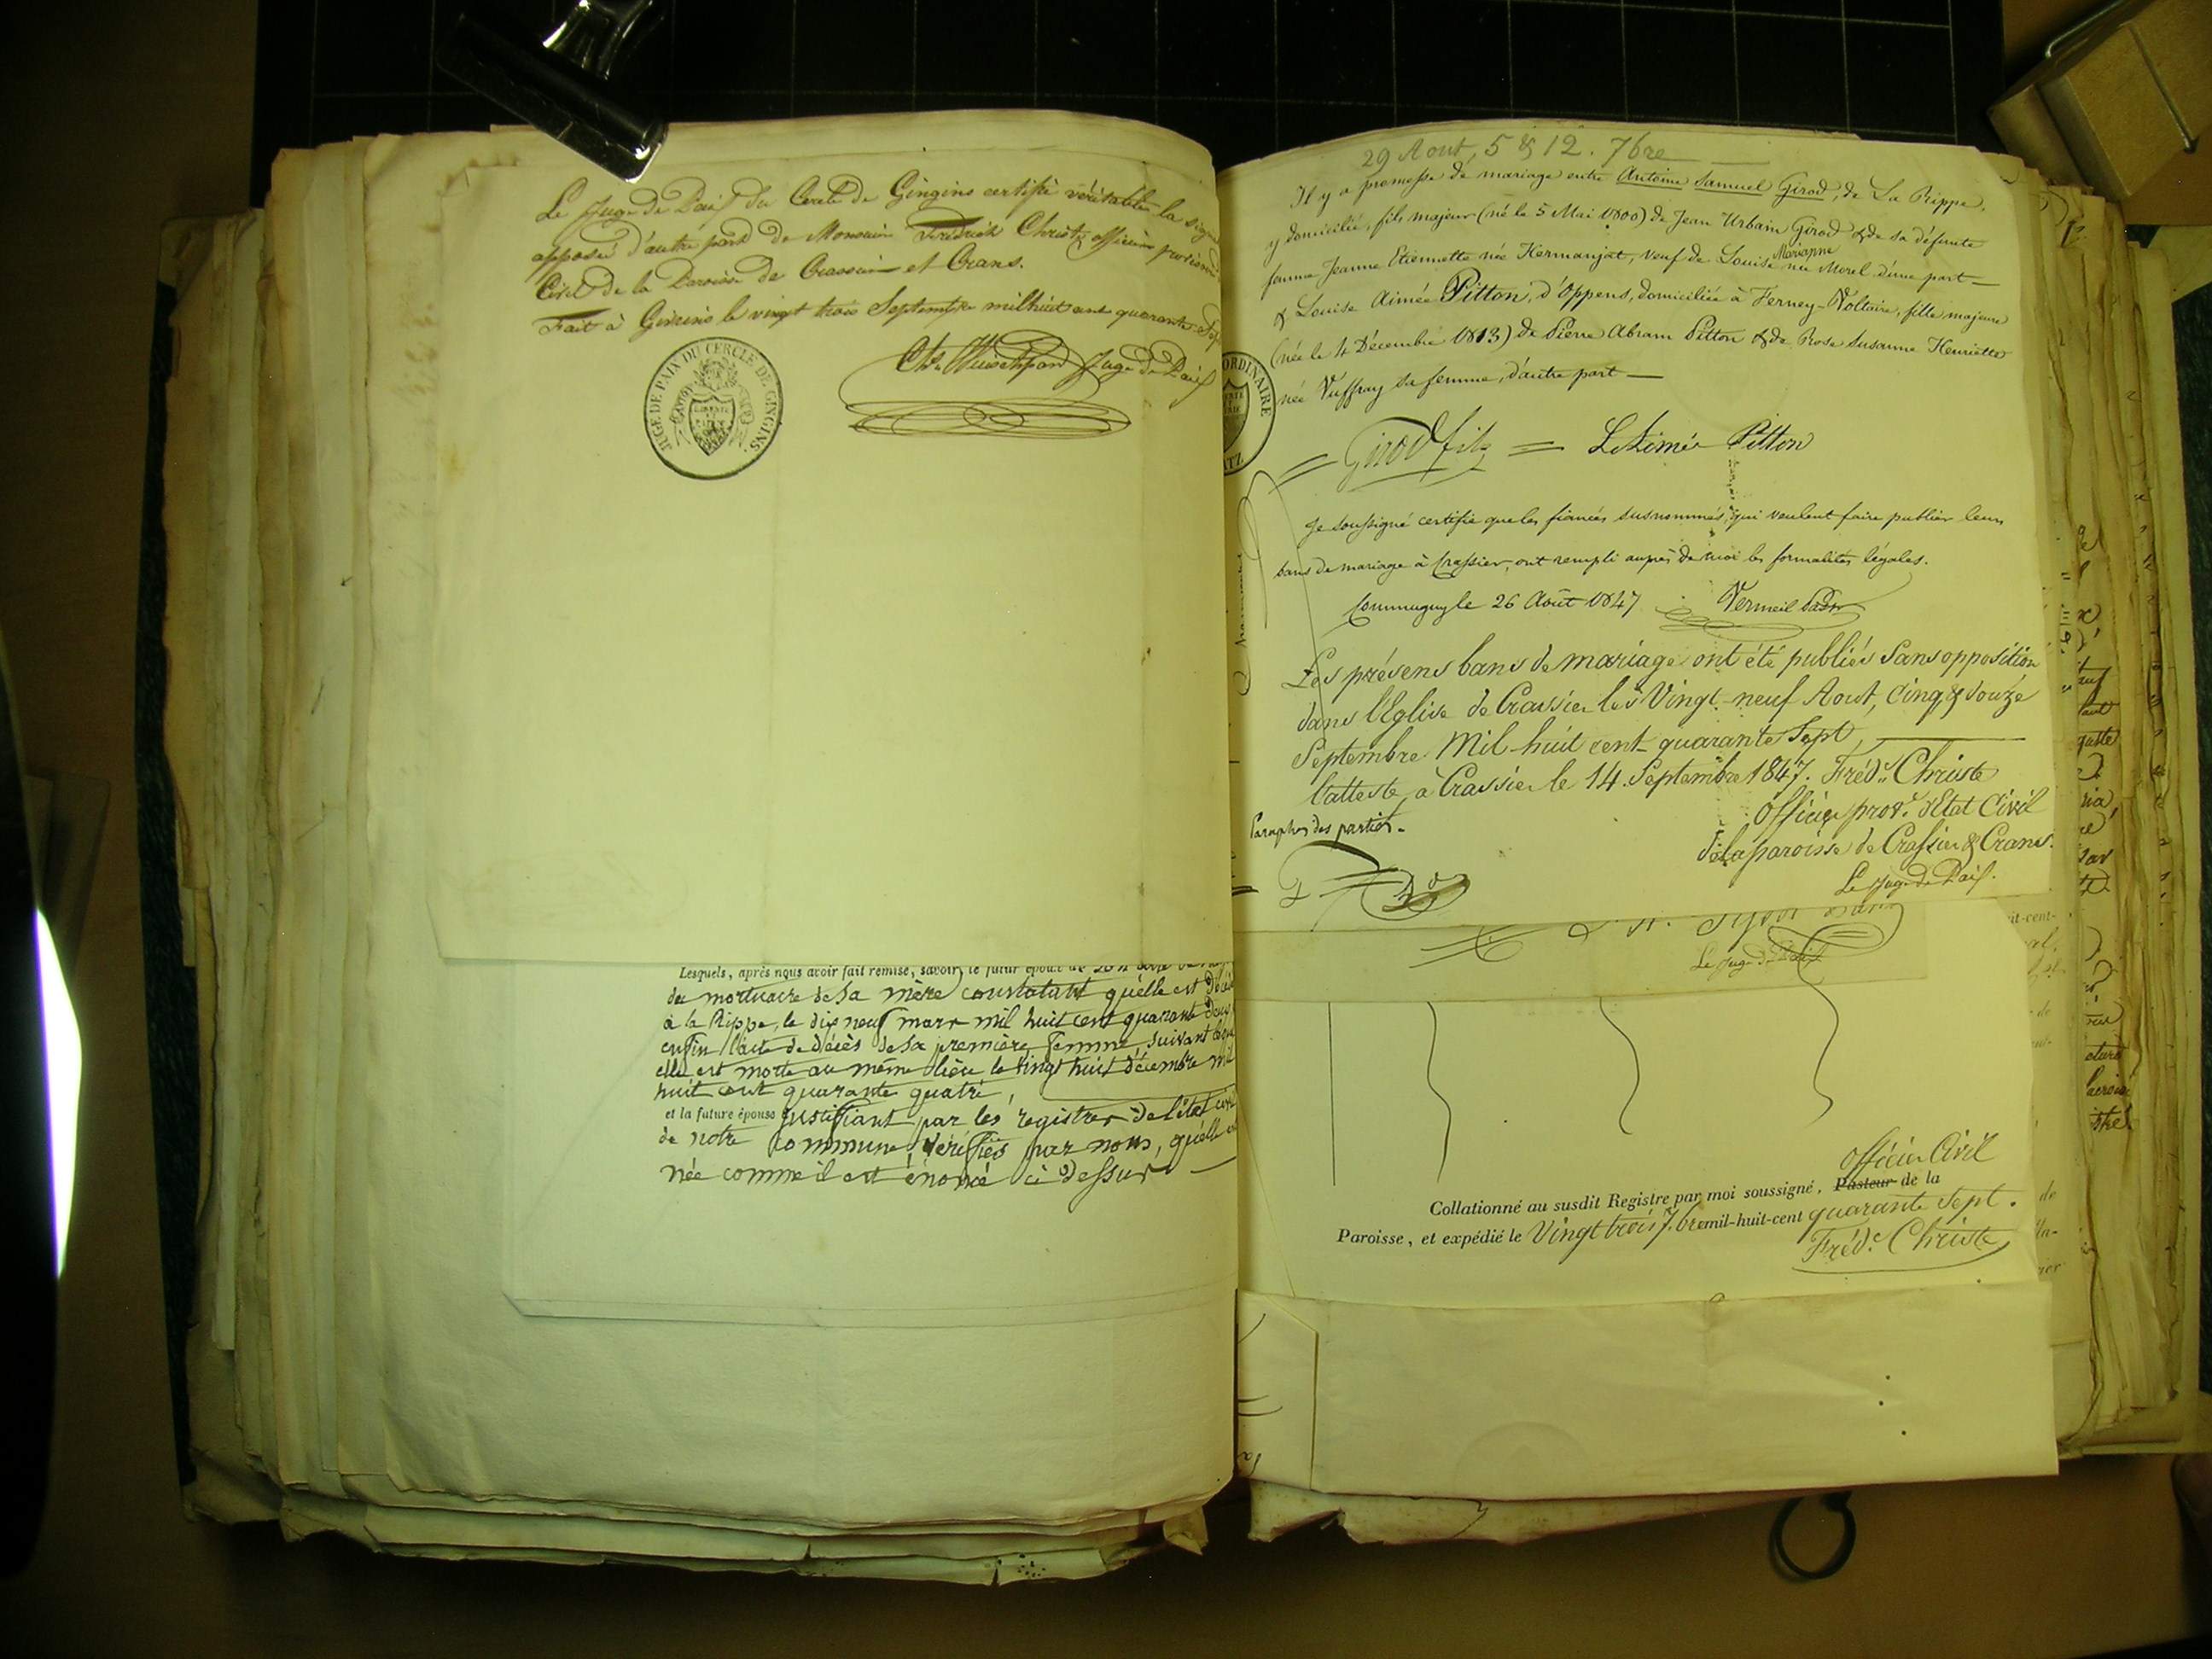 Le Juge de Paix du Cercle de Gingins certifie véritable la sign
apposée d'autre part de Monsieur Frédrich Christe officier provisoire
Civil de la Paroisse de Crassier et Crans.
Fait à Gingins le vingt trois Septembre mil huit cent quarante Sept
Juge de Paix
JUGE DE PAIX DU CERCLE DE GINGINS.
CANTON DE VAUD
LIBERTÉ ET PATRIE
Lesquels, après nous avoir fait remise, savoir, le futur époux de son
du mortuaire de sa mère constatant qu'elle est décé
à la Rippe, le dix neuf mars mil huit cent quarante deux
enfin l'acte de décès de sa première femme, suivant lequel
elle est morte au même lieu le vingt huit décembre mil
huit cent quarante quatre,
et la future épouse justifiant par les registres de l'état civil
de notre commune, vérifiés par nous, qu'elle e
née comme il est énoncé ci dessus —
29 Aout, 5 & 12. 7bre —
Il y a promesse de mariage entre Antoine Samuel Girod, de La Rippe,
y domicilié, fils majeur (né le 5 Mai 1800) de Jean Urbain Girod & de sa défunte
femme Jeanne Etiennette née Hermanjat, veuf de Louise Marianne née Morel d'une part —
& Louise Aimée Pitton, d'Oppens, domiciliée à Ferney-Voltaire, fille majeure
(née le 4 Décembre 1813) de Pierre Abram Pitton & de Rose Susanne Henriette
née Vuffray sa femme, d'autre part —
ORDINAIRE
= Girod fils = L Aimée Pitton
Je soussigné certifie que les fiancés susnommés, qui veulent faire publier leurs
bans de mariage à Crassier, ont rempli auprès de moi les formalités légales.
Commugny le 26 Août 1847 Vermeil Past
Les présens bans de mariage ont été publiés Sans opposition
dans l'Eglise de Crassier les Vingt-neuf Aout, Cinq & douze
Septembre Mil-huit cent-quarante Sept, —
l'atteste, à Crassier le 14. Septembre 1847. Fréd.c Christe
Officier prov.e d'Etat Civil
de la paroisse de Crassier & Crans.
Le Juge de Paix.
Paraphes des parties.
Le Juge de Paix
Officier Civil
Collationné au susdit Registre par moi soussigné, Pasteur de la
Paroisse, et expédié le Vingt trois 7.bre mil-huit-cent quarante Sept.
Fréd.c Christe